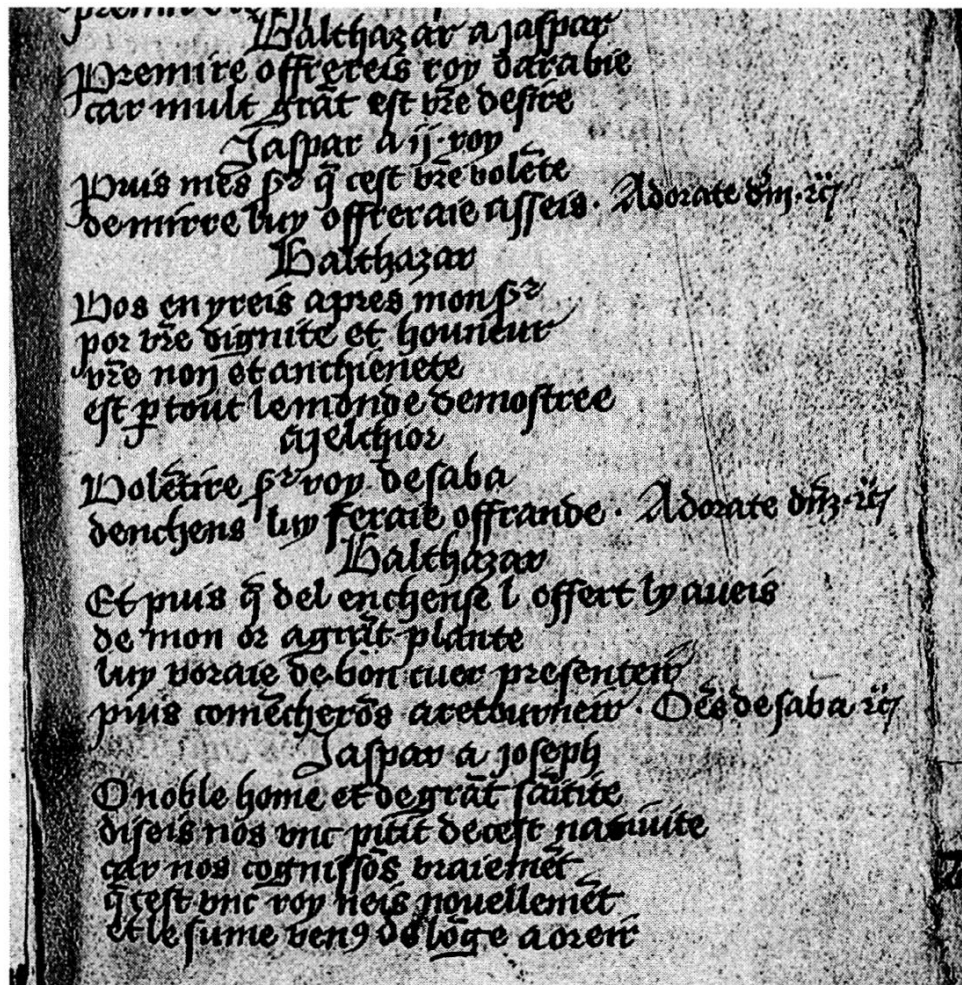 Balthazar a jaspar
Premire offrereis roy darabie
car mult grāt est vr̄e desire
Jaspar a ij· roy
Puis mes sr q̄ cest vr̄e volēte
de mirre luy offreraie asseis · Adorate dn̄m·
Balthazar
Vos en yreis apres mon sr
por vr̄e dignite et houneur
vr̄e non et anchienete
est ꝑ tout le monde demostree
Melchior
Volētire sr roy de saba
denchens luy feraie offrande · Adorate dn̄m·
Balthazar
Et puis q̄ del enchense l offert ly aueis
de mon or a grāt plante
luy voraie de bon cuer presenteir
puis comēcherōs a retourneir · Oēs de saba
Jaspar a joseph
O noble home et de grāt sāitite
diseis nōs vnc pitit de cest natiuite
car nos cognissōs vraiemēt
q̄ cest vnc roy neis nouellemēt
et le sume venꝰ de lōge aoreir